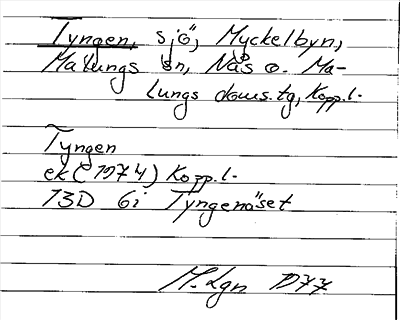 Tyngen, sjö, Myckelbyn,
Malungs sn, Nås o. Ma-
lungs doms.tg, Kopp.l.
Tyngen
ek (1974) Kopp.l.
13D 6i Tyngenöset
M. Lgn 1977